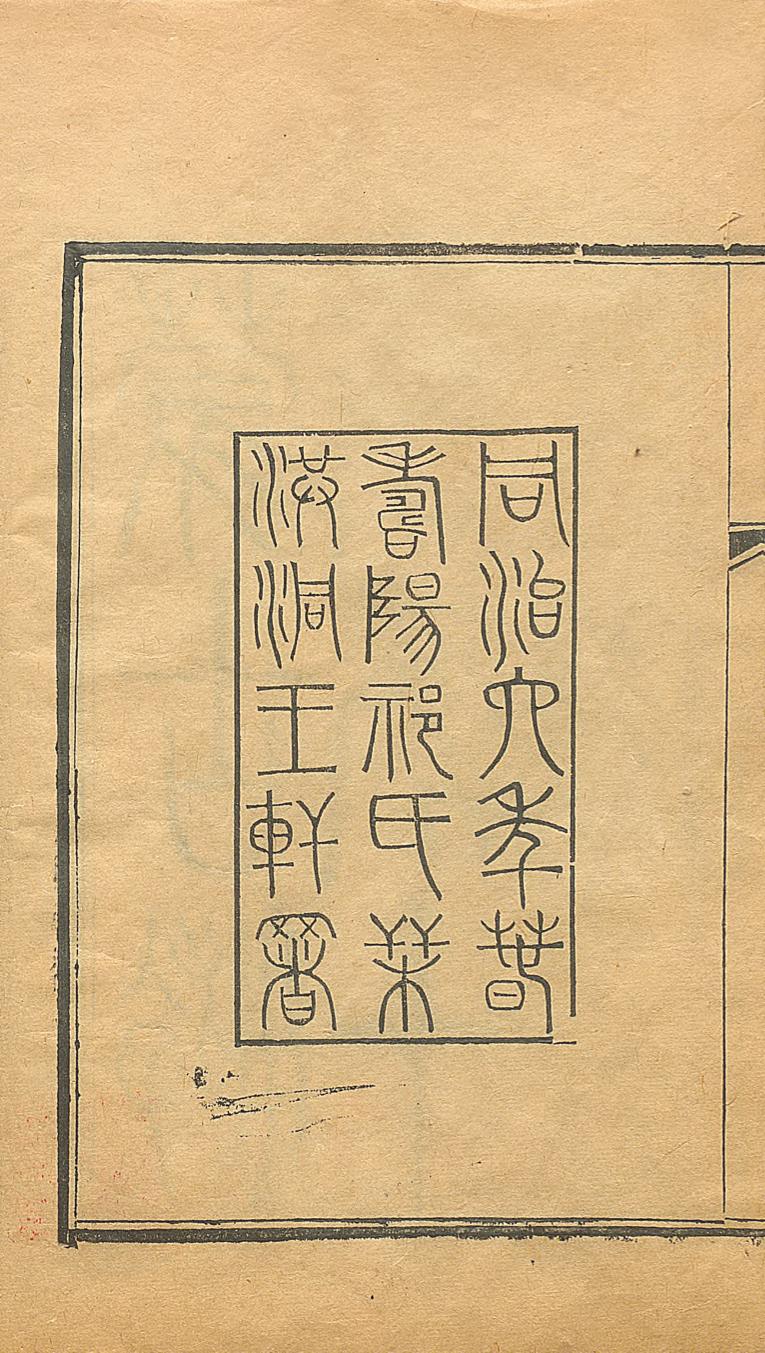 同治六年春
壽陽祁氏栞
洪洞王軒署